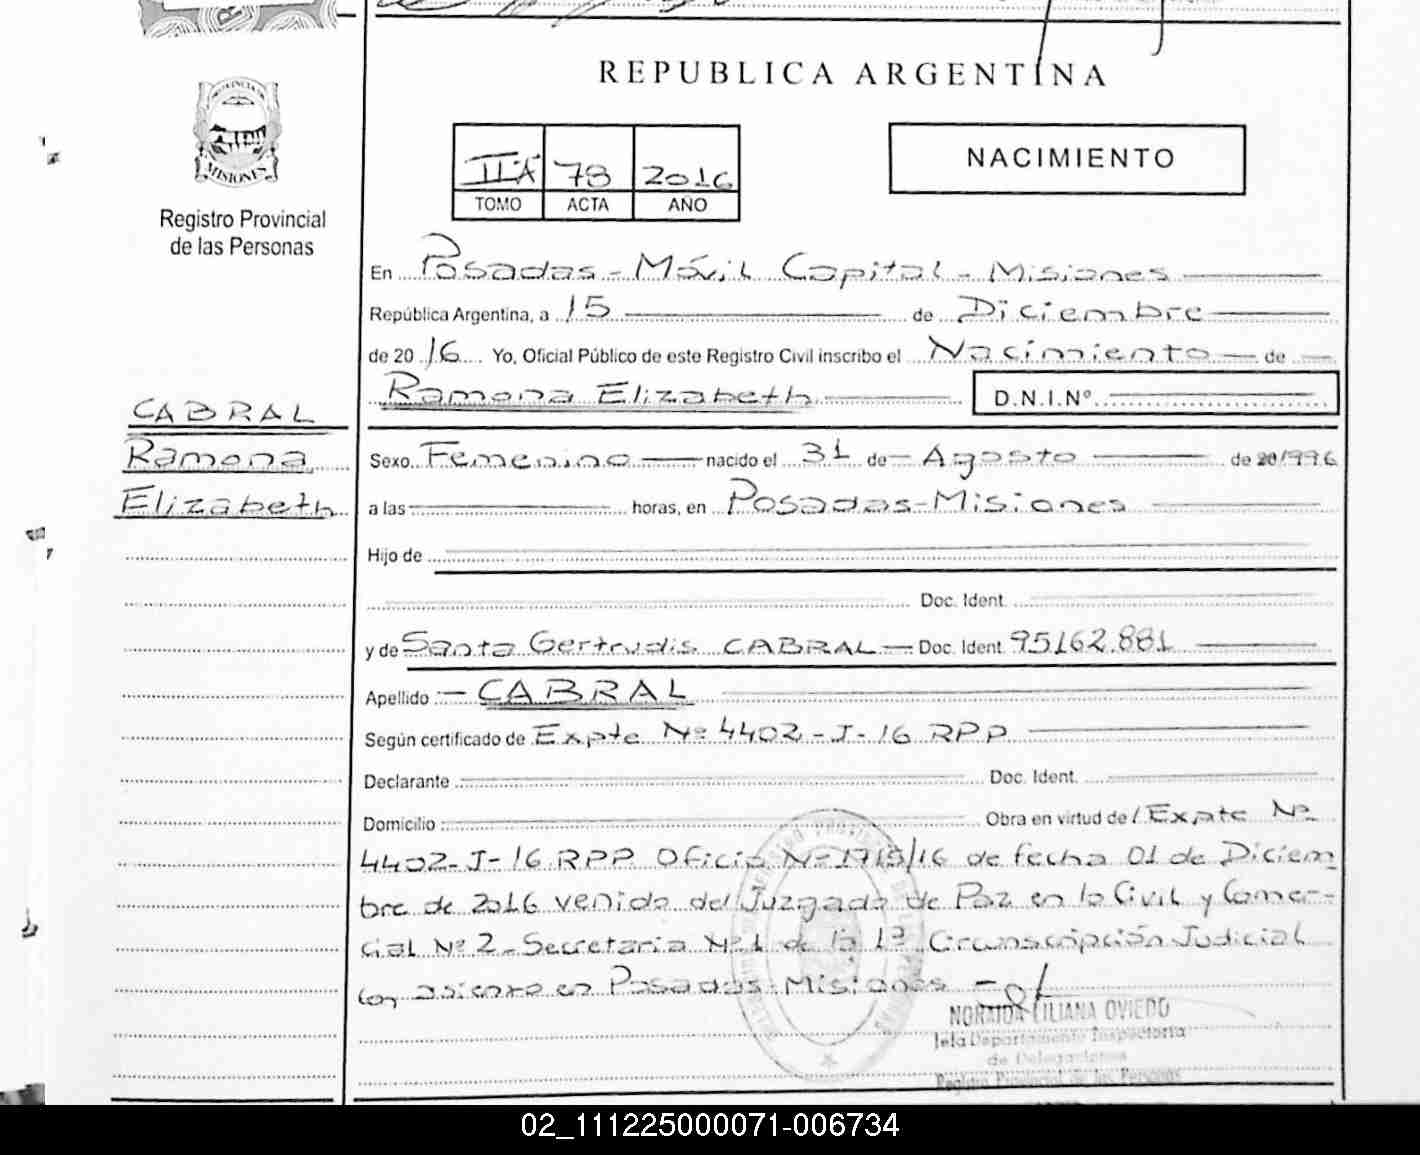 REPUBLICA ARGENTINA
MISIONES
Registro Provincial
de las Personas
IIA 78 2016
TOMO ACTA AÑO
NACIMIENTO
En Posadas - Móvil Capital - Misiones
República Argentina, a 15 de Diciembre
de 20 16 Yo, Oficial Público de este Registro Civil inscribo el Nacimiento de
Ramona Elizabeth D.N.I.Nº
CABRAL
Ramona
Elizabeth
Sexo Femenino nacido el 31 de Agosto de 1996
a las horas, en Posadas-Misiones
Hijo de
Doc. Ident.
y de Santa Gertrudis CABRAL Doc. Ident. 95162.881
Apellido CABRAL
Según certificado de Expte Nº 4402-J-16 RPP
Declarante Doc. Ident.
Domicilio Obra en virtud de Expte Nº
4402-J-16 RPP. Oficio Nº 1715/16 de fecha 01 de Diciem
bre de 2016 venido del Juzgado de Paz en lo Civil y Comer-
cial Nº 2 - Secretaria Nº 1 de la 1ª Circunscripción Judicial
con asiento en Posadas-Misiones
NORAIDA LILIANA OVIEDO
Jefa Departamento Inspectoria
de Delegaciones
Registro Provincial de las Personas
02_111225000071-006734